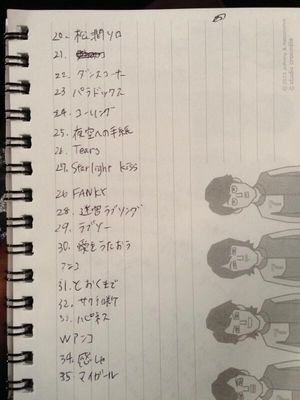 20. 松潤ソロ
21.
22. ダンスコーナー
23 パラドックス
24. コーリング
25. 夜空への手紙
26. Tears
27. Starlight kiss
26 FANKY
28. 迷宮ラブソング
29. ラブソー
30. 愛をうたおう
アンコ
31. とおくまで
32. サクラ咲ケ
33. ハピネス
Wアンコ
34. 感しゃ
35. マイガール